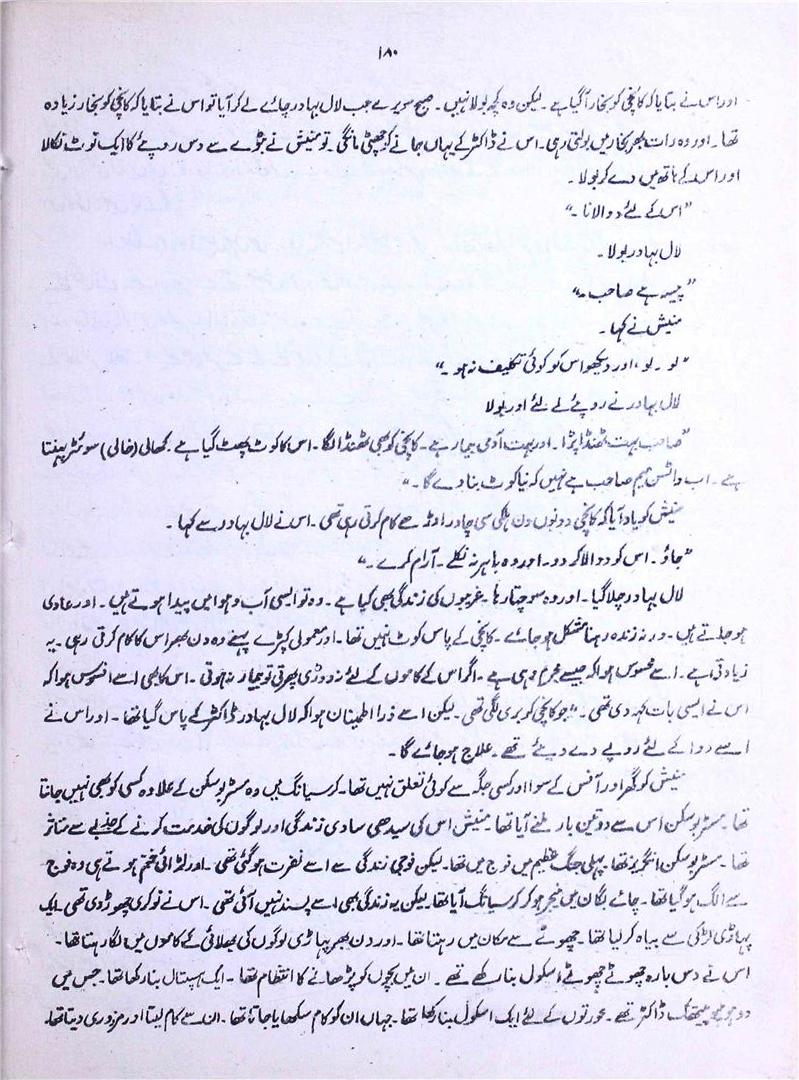 ۱۸۰
اور اس نے بتایا کہ کانچی کو بخار آگیا ہے ۔ لیکن وہ کچھ بولا نہیں ۔ صبح سویرے جب لال بہادر چائے لے کر آیا تو اس نے بتایا کہ کانچی کو بخار زیادہ
تھا ۔ اور وہ رات بھر بخار میں بولتی رہی ۔ اس نے ڈاکٹر کے یہاں جانے کو چھٹی مانگی ۔ تو منیش نے بٹوے سے دس روپے کا ایک نوٹ نکالا
اور اس کے ہاتھ میں دے کر بولا ۔
”اس کے لئے دوا لانا ۔“
لال بہادر بولا ۔
”پیسہ ہے صاحب ۔“
منیش نے کہا ۔
”لو ۔ لو ، اور دیکھو اس کو کوئی تکلیف نہ ہو ۔“
لال بہادر نے روپئے لے لئے اور بولا
”صاحب بہت ٹھنڈا پڑا ۔ اور بہت آدمی بیمار ہے ۔ کانچی کو بھی ٹھنڈا لگا ۔ اس کا کوٹ پھٹ گیا ہے ۔ کھالی (خالی) سوئٹر پہنتا
ہے ۔ اب واٹسن میم صاحب ہے نہیں کہ نیا کوٹ بنا دے گا ۔“
منیش کو یاد آیا کہ کانچی دونوں دن ہلکی سی چادر اوڑھے کام کرتی رہی تھی ۔ اس نے لال بہادر سے کہا ۔
”جاؤ ۔ اس کو دوا لا کر دو ۔ اور وہ باہر نہ نکلے ۔ آرام کرے ۔“
لال بہادر چلا گیا ۔ اور وہ سوچتا رہا ۔ غریبوں کی زندگی بھی کیا ہے ۔ وہ تو ایسی آب و ہوا میں پیدا ہوتے ہیں ۔ اور عادی
ہو جاتے ہیں ۔ ورنہ زندہ رہنا مشکل ہو جائے ۔ کانچی کے پاس کوٹ نہیں تھا ۔ اور معمولی کپڑے پہنے وہ دن بھر اس کا کام کرتی رہی ۔ یہ
زیادتی ہے ۔ اسے محسوس ہوا کہ جیسے مجرم وہی ہے ۔ اگر اس کے کاموں کے لئے نہ دوڑی پھرتی تو بیمار نہ ہوتی ۔ اس کا بھی اسے افسوس ہوا کہ
اس نے ایسی بات کہہ دی تھی ۔ جو کانچی کو بری لگی تھی ۔ لیکن اسے ذرا اطمینان ہوا کہ لال بہادر ڈاکٹر کے پاس گیا تھا ۔ اور اس نے
اسے دوا کے لئے روپے دے دیئے تھے ۔ علاج ہو جائے گا ۔
منیش کو گھر اور آفس کے سوا اور کسی جگہ سے کوئی تعلق نہیں تھا ۔ کرسیانگ میں وہ مسٹر بوسکن کے علاوہ کسی کو بھی نہیں جانتا
تھا ۔ مسٹر بوسکن اس سے دو تین بار ملنے آیا تھا ۔ منیش اس کی سیدھی سادی زندگی اور لوگوں کی خدمت کرنے کے جذبے سے متاثر
تھا ۔ مسٹر بوسکن انگریز تھا ۔ پہلی جنگ عظیم میں فوج میں تھا ۔ لیکن فوجی زندگی سے اسے نفرت ہو گئی تھی ۔ اور لڑائی ختم ہوتے ہی وہ فوج
سے الگ ہو گیا تھا ۔ چائے بگان میں منیجر ہو کر کرسیانگ آیا تھا ۔ لیکن یہ زندگی بھی اسے پسند نہیں آئی تھی ۔ اس نے نوکری چھوڑ دی تھی ۔ ایک
پہاڑی لڑکی سے بیاہ کر لیا تھا ۔ چھوٹے سے مکان میں رہتا تھا ۔ اور دن بھر پہاڑی لوگوں کی بھلائی کے کاموں میں لگا رہتا تھا ۔
اس نے دس بارہ چھوٹے چھوٹے اسکول بنا رکھے تھے ۔ ان میں بچوں کو پڑھانے کا انتظام تھا ۔ ایک ہسپتال بنا رکھا تھا ۔ جس میں
دو ہومیوپیتھک ڈاکٹر تھے ۔ عورتوں کے لئے ایک اسکول بنا رکھا تھا ۔ جہاں ان کو کام سکھایا جاتا تھا ۔ ان سے کام لیتا اور مزدوری دیتا تھا ۔